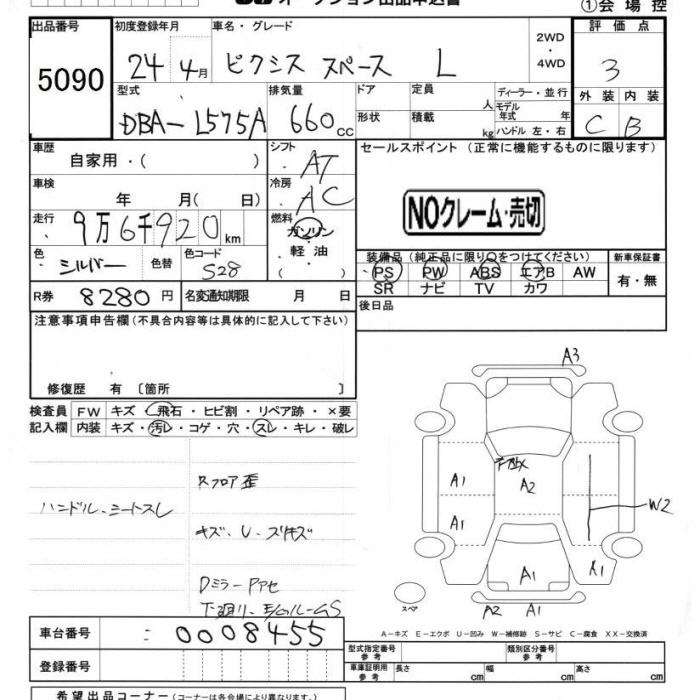 オークション出品申込書
①会場控
出品番号 初度登録年月 車名・グレード 評価点
5090 24年 4月 ピクシス スペース L 2WD・4WD 3
型式 排気量 ドア 定員 人 ディーラー・並行 外装 内装
DBA-L575A 660cc 形状 積載 kg モデル年式 年 ハンドル 左・右 C B
車歴 シフト セールスポイント (正常に機能するものに限ります)
自家用・( ) AT
車検 冷房
年 月(日) AC
NOクレーム・売切
走行 燃料
9万6千920km ガソリン・軽油・( )
色 色替 色コード 装備品 (純正品に限り○をつけてください) 新車保証書
シルバー S28 PS PW ABS エアB AW 有・無
SR ナビ TV カワ
R券 8280円 名変通知期限 月 日 後日品
注意事項申告欄 (不具合内容等は具体的に記入して下さい)
修復歴 有 〔箇所 〕
検査員 FW キズ・飛石・ヒビ割・リペア跡・×要
記入欄 内装 キズ・汚レ・コゲ・穴・スレ・キレ・破レ
A3
A1 A2 W2
A1
A1
A2 A1
スペア
Rフロア歪
ハンドル、シートスレ
キズ、U、スリキズ
DミラーPアセ
A-キズ E-エクボ U-凹み W-補修跡 S-サビ C-腐食 XX-交換済
車台番号 0008455
型式指定番号 参考 類別区分番号 参考
登録番号 車庫証明用 参考 長さ cm 幅 cm 高さ cm
希望出品コーナー (コーナーは各会場により異なります。)